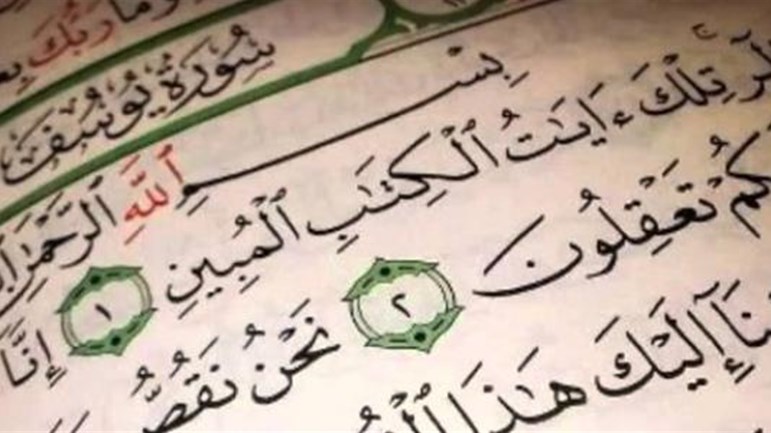 وما ربك
سورة يوسف
بِسْمِ اللَّهِ الرَّحْمَٰنِ
الٓر تِلْكَ ءَايَٰتُ الْكِتَٰبِ الْمُبِينِ ١ إِنَّا
كُمْ تَعْقِلُونَ ٢ نَحْنُ نَقُصُّ
إِلَيْكَ هَٰذَا